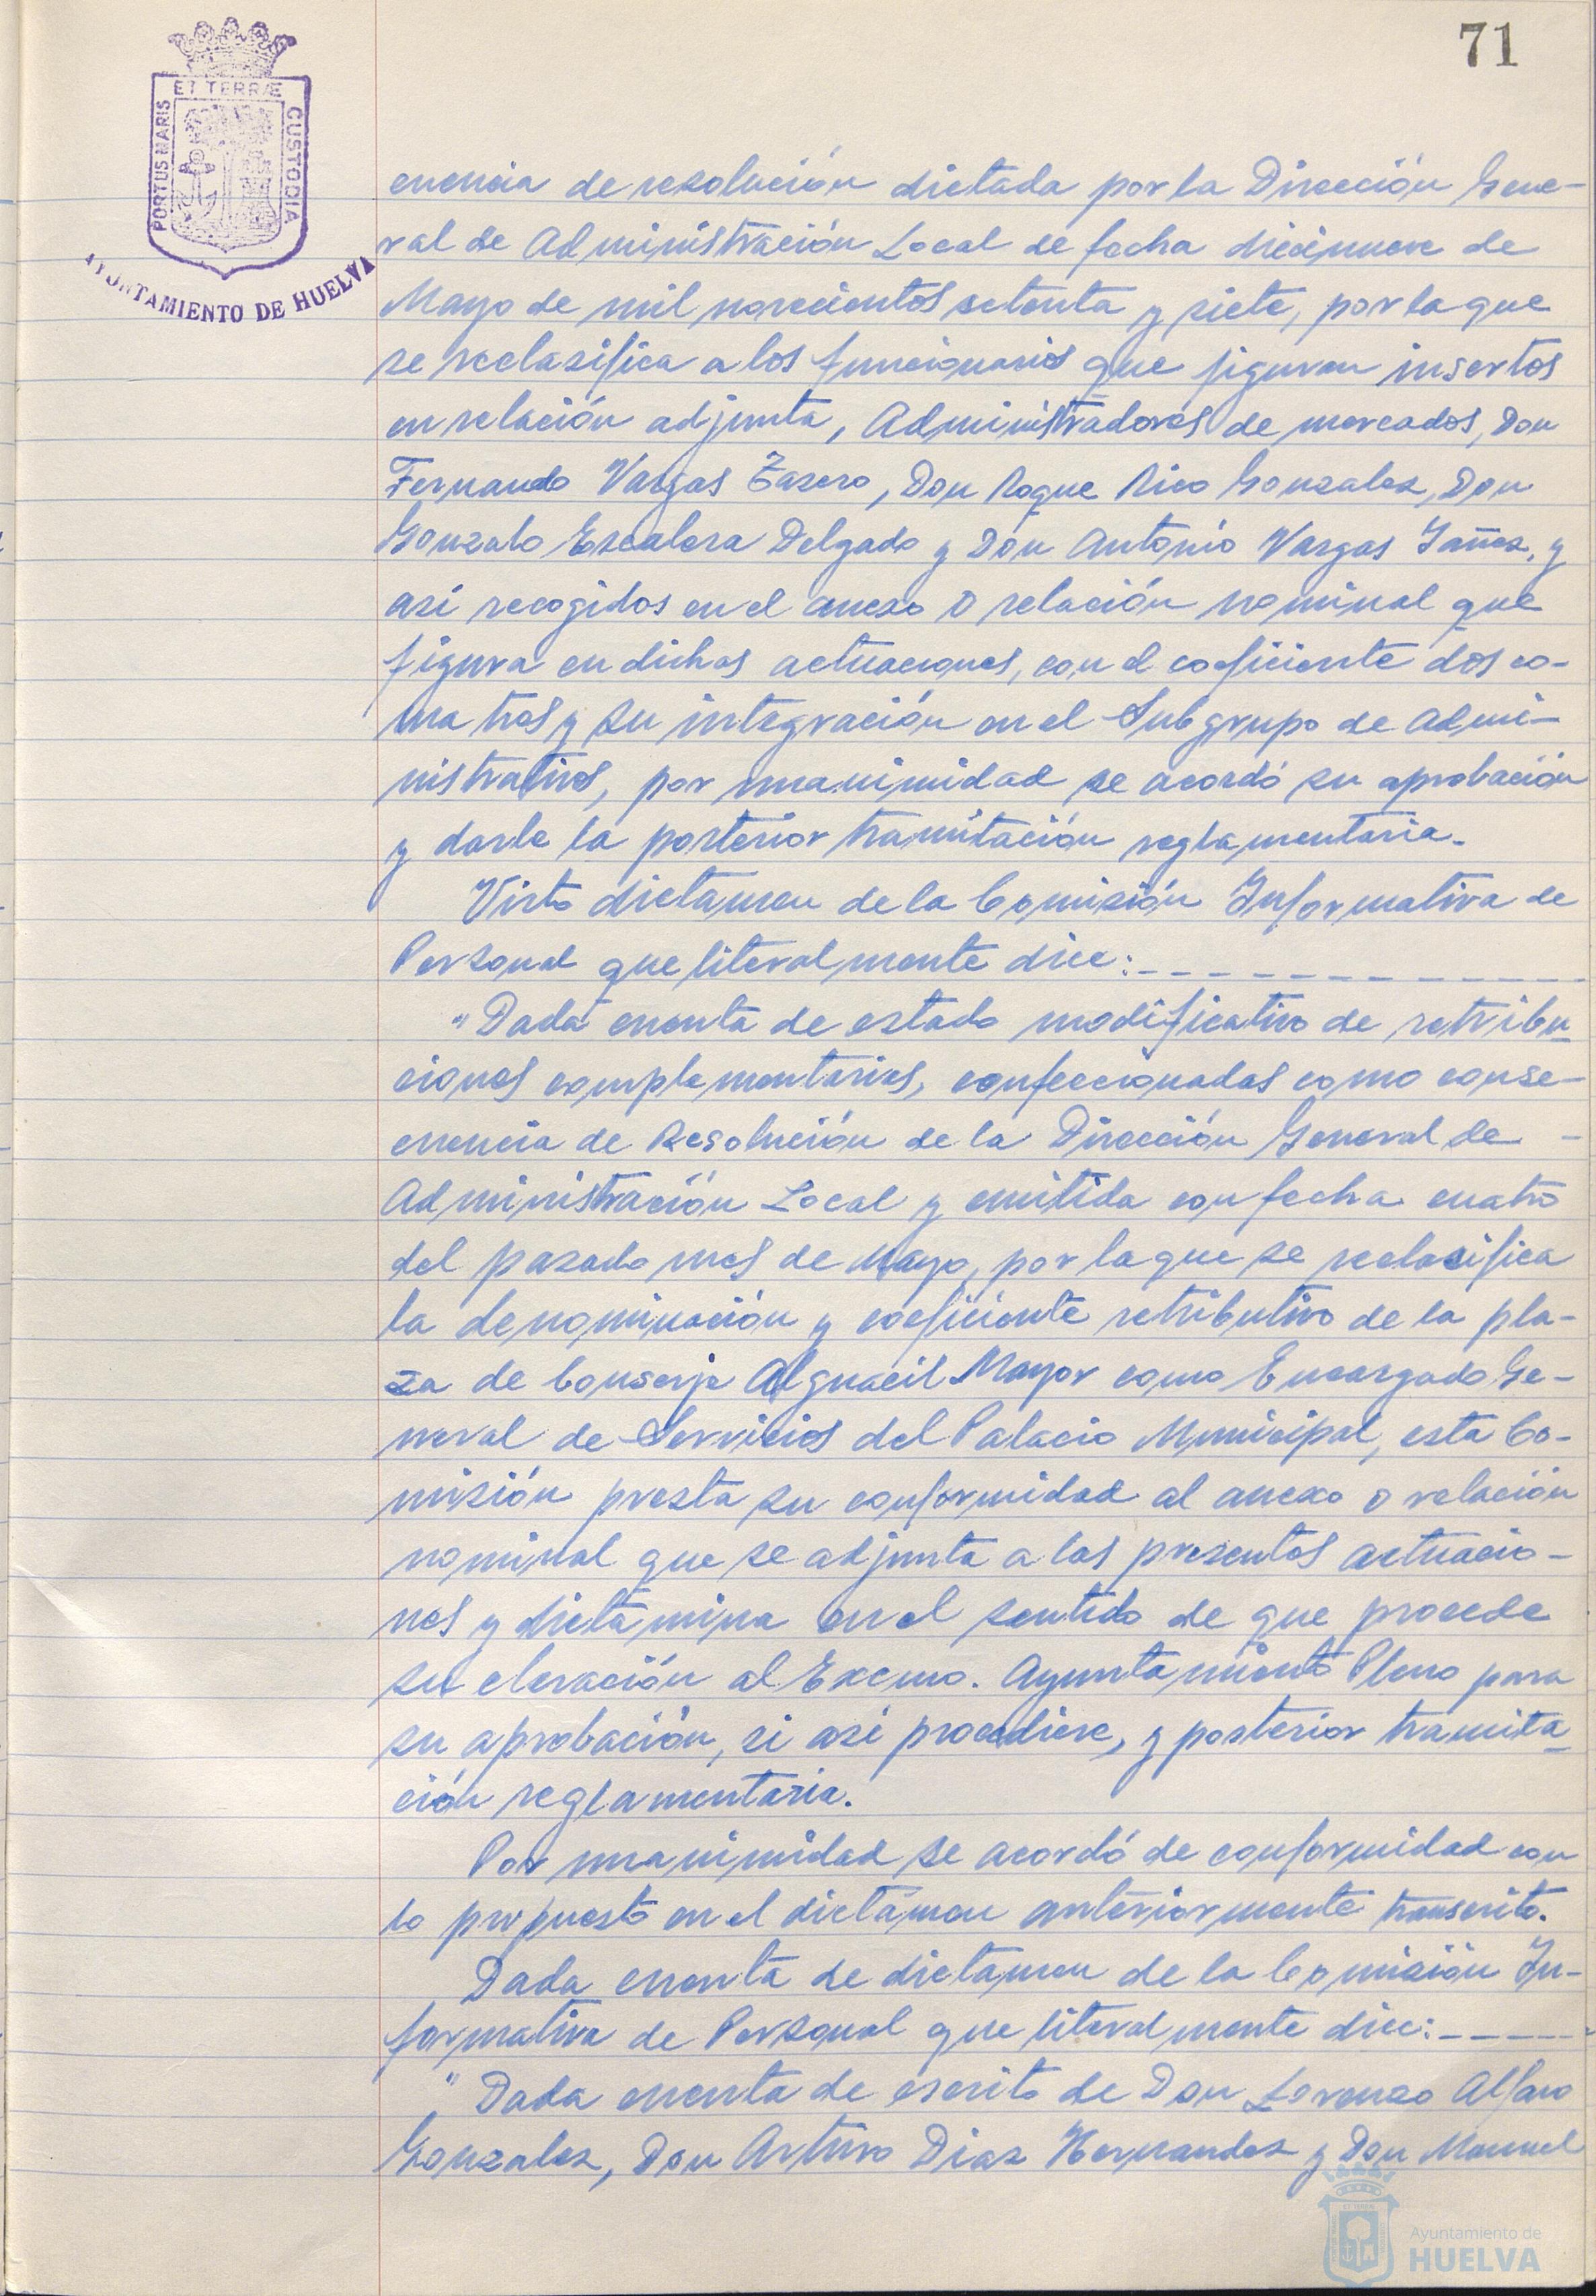 71
ET TERRÆ
PORTUS MARIS
CUSTODIA
AYUNTAMIENTO DE HUELVA
cuencia de resolución dictada por la Dirección Gene-
ral de Administración Local de fecha diecinueve de
Mayo de mil novecientos setenta y siete, por la que
se reclasifica a los funcionarios que figuran insertos
en relación adjunta, Administradores de mercados, Don
Fernando Vargas Zasero, Don Roque Rico Gonzalez, Don
Gonzalo Escalera Delgado y Don Antonio Vargas Yañez, y
asi recogidos en el anexo o relación nominal que
figura en dichas actuaciones, con el coeficiente dos co-
ma tres y su integración en el Subgrupo de Admi-
nistrativos, por unanimidad se acordó su aprobación
y darle la posterior tramitación reglamentaria.
Visto dictamen de la Comisión Informativa de
Personal que literalmente dice:
"Dada cuenta de estado modificativo de retribu-
ciones complementarias, confeccionadas como conse-
cuencia de Resolución de la Dirección General de
Administración Local y emitida con fecha cuatro
del pasado mes de Mayo, por la que se reclasifica
la denominación y coeficiente retributivo de la pla-
za de Conserje Alguacil Mayor como Encargado Ge-
neral de Servicios del Palacio Municipal, esta Co-
misión presta su conformidad al anexo o relación
nominal que se adjunta a las presentes actuacio-
nes y dictamina en el sentido de que procede
su elevación al Excmo. Ayuntamiento Pleno para
su aprobación, si asi procediere, y posterior tramita-
ción reglamentaria.
Por unanimidad se acordó de conformidad con
lo propuesto en el dictámen anteriormente transcrito.
Dada cuenta de dictamen de la Comisión In-
formativa de Personal que literalmente dice:
"Dada cuenta de escrito de Don Lorenzo Alfaro
Gonzalez, Don Arturo Diaz Hernandez y Don Manuel
Ayuntamiento de
HUELVA